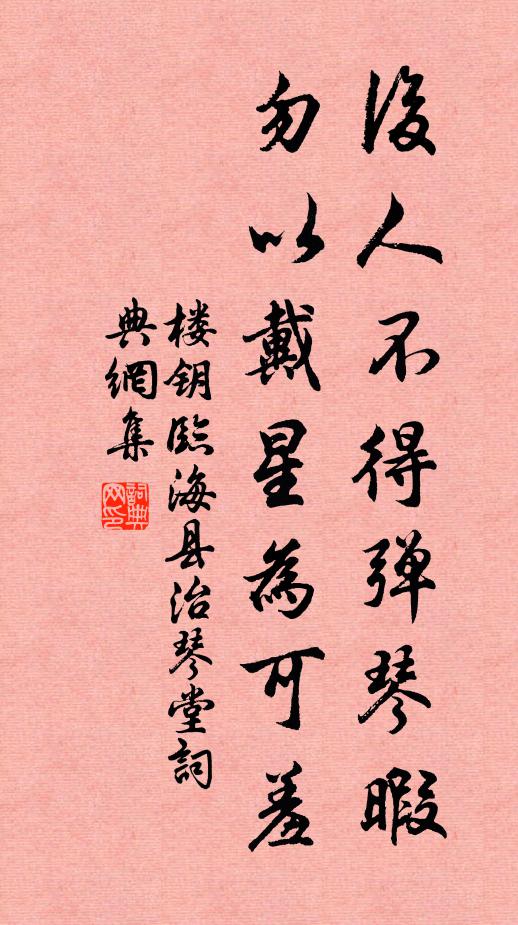 後人不得弹琴暇
勿以戴星為可羞
楼钥臨海县治琴堂詞
典網集
詞典网印